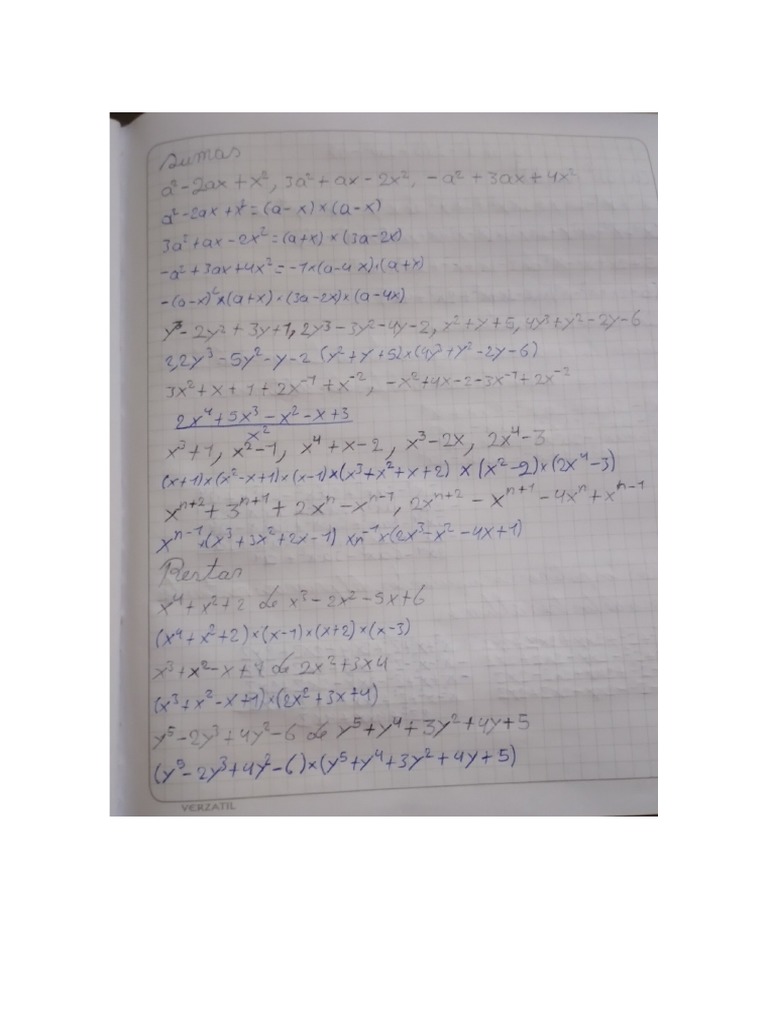 Sumas
a² - 2ax + x², 3a² + ax - 2x², -a² + 3ax + 4x²
a² - 2ax + x² = (a - x) × (a - x)
3a² + ax - 2x² = (a+x) × (3a - 2x)
-a² + 3ax + 4x² = -1 × (a - 4x) × (a + x)
-(a-x)² × (a+x) × (3a-2x) × (a-4x)
y³ - 2y² + 3y + 1, 2y³ - 3y² - 4y - 2, x² + y + 5, 4y³ + y² - 2y - 6
2,2y³ - 5y² - y - 2 (y² + y + 52) × (4y³ + y² - 2y - 6)
3x² + x + 1 + 2x⁻¹ + x⁻², -x² + 4x - 2 - 3x⁻¹ + 2x⁻²
2x⁴ + 5x³ - x² - x + 3
x²
x³ + 1, x² - 1, x⁴ + x - 2, x³ - 2x, 2x⁴ - 3
(x+1) × (x² - x + 1) × (x-1) × (x³ + x² + x + 2) × (x² - 2) × (2x⁴ - 3)
xⁿ⁺² + 3ⁿ⁺¹ + 2xⁿ - xⁿ⁻¹, 2xⁿ⁺² - xⁿ⁺¹ - 4xⁿ + xⁿ⁻¹
xⁿ⁻¹ × (x³ + 3x² + 2x - 1) xn⁻¹ × (2x³ - x² - 4x + 1)
Restas
x⁴ + x² + 2 de x³ - 2x² - 5x + 6
(x⁴ + x² + 2) × (x-1) × (x+2) × (x-3)
x³ + x² - x + 1 de 2x² + 3x4
(x³ + x² - x + 1) × (2x² + 3x + 4)
y⁵ - 2y³ + 4y² - 6 de y⁵ + y⁴ + 3y² + 4y + 5
(y⁵ - 2y³ + 4y² - 6) × (y⁵ + y⁴ + 3y² + 4y + 5)
VERZATIL